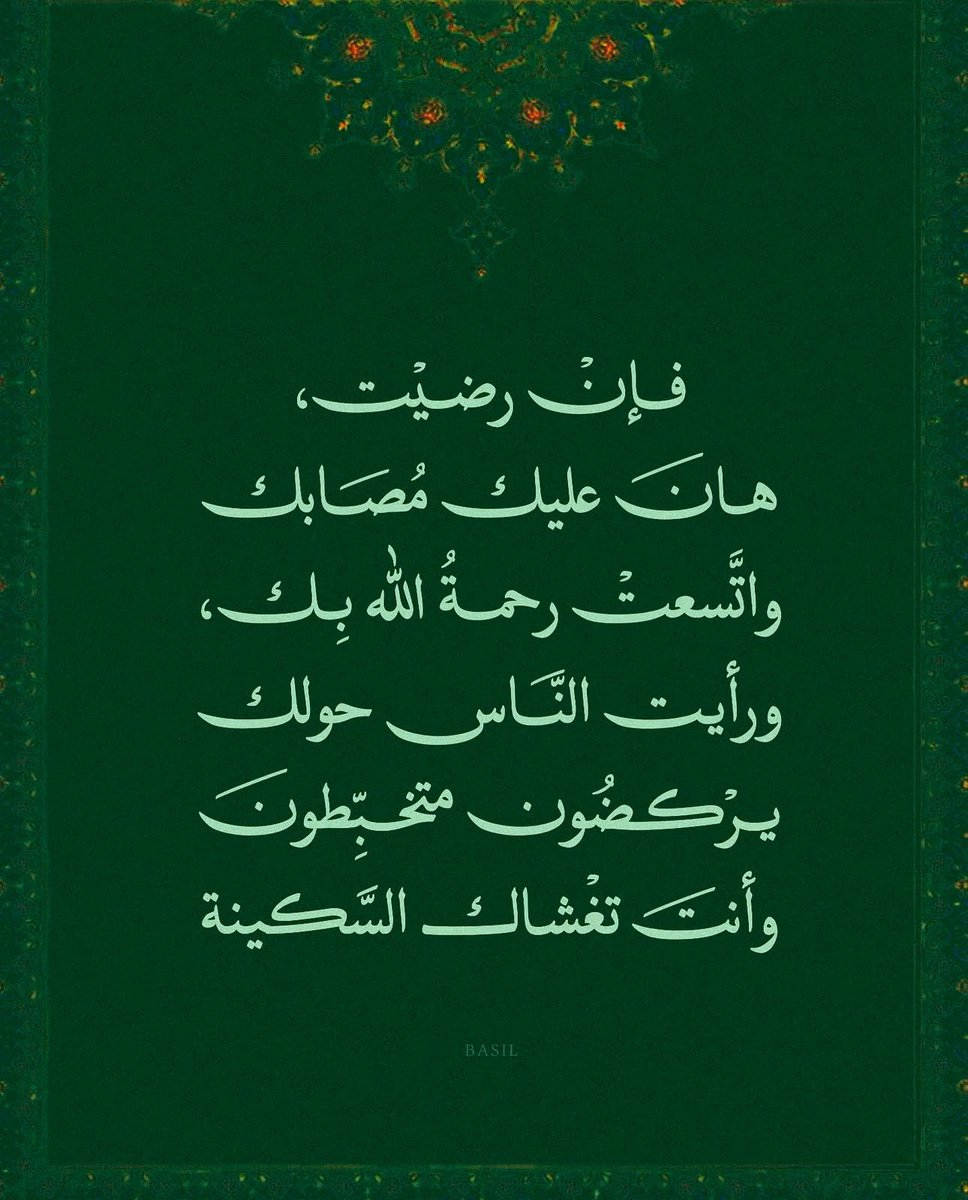 فإنْ رضيْت،
هانَ عليك مُصَابك
واتَّسعتْ رحمةُ الله بِك،
ورأيت النَّاس حولك
يرْكضُون متخبِّطونَ
وأنتَ تغْشاك السَّكينة
BASIL